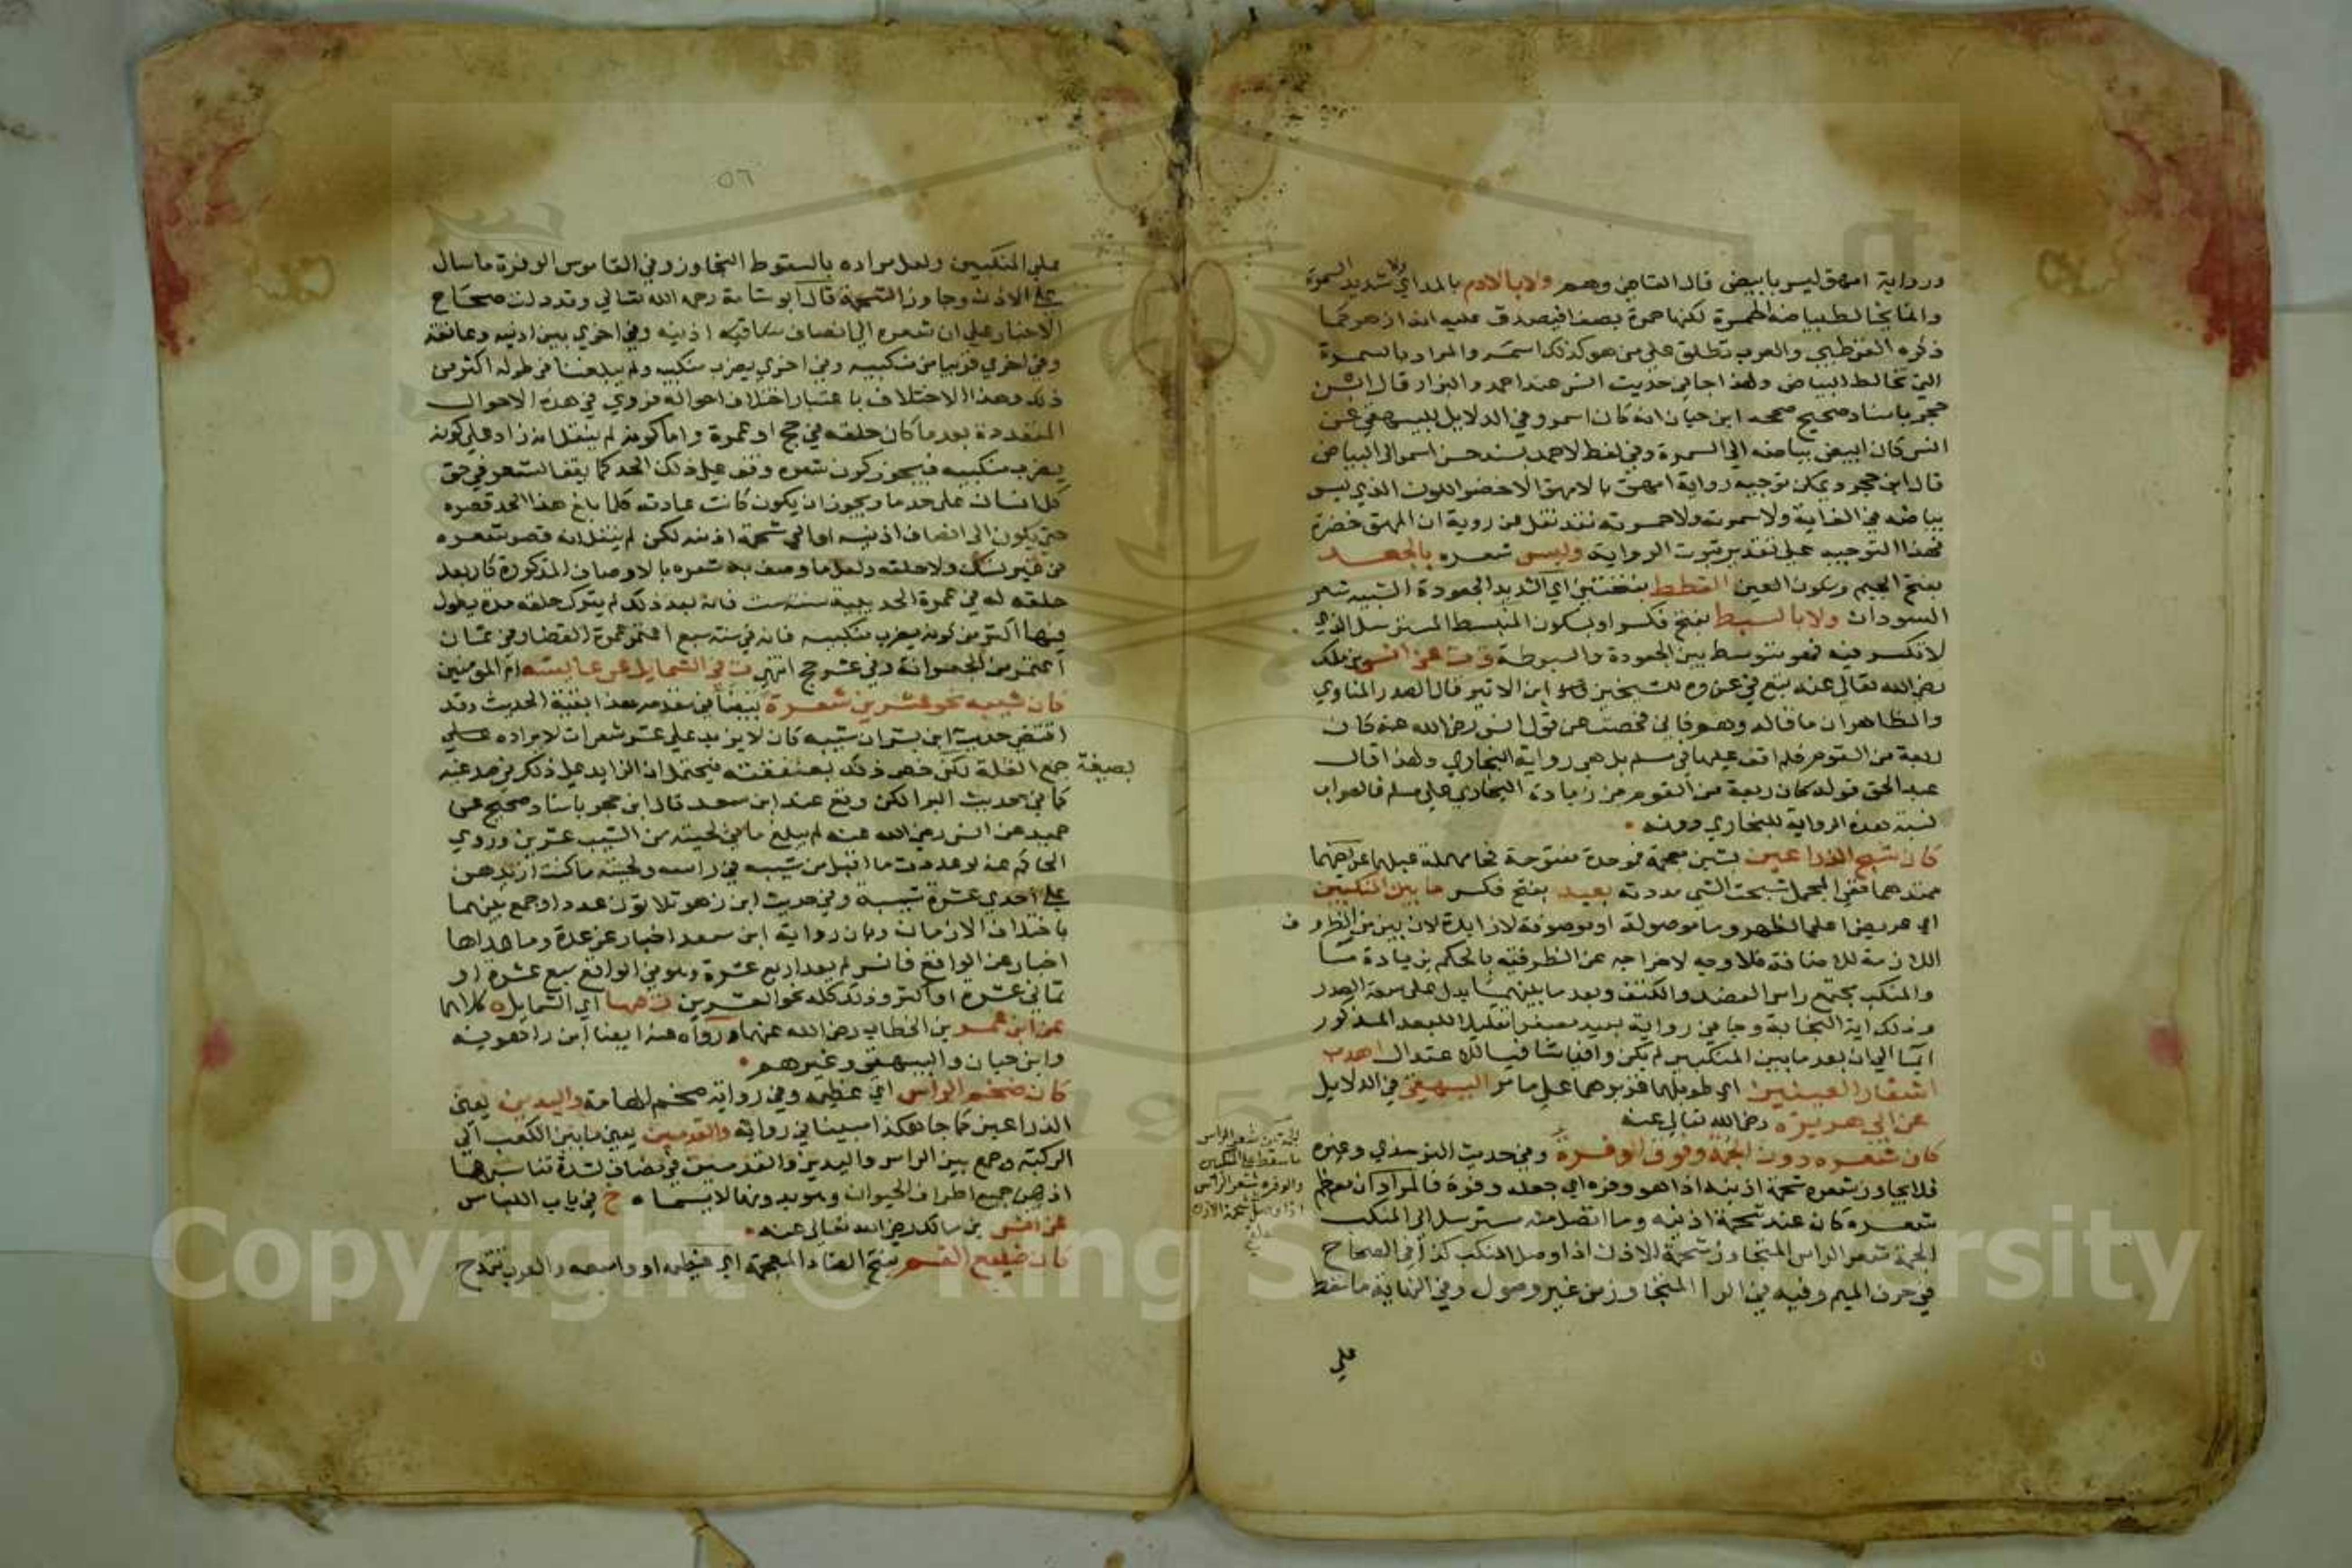 ورواية امهق ليس بابيض قال القاضي وهم ولا بالادم بالمد اي ولا شديد السمرة
وانما يخالط بياضه الحمرة لكنها حمرة بصفا فيصدق عليه انه ازهر كما
ذكره القرطبي والعرب تطلق على من هو كذلك اسمر والمراد بالسمرة
التي تخالط البياض ولهذا جا في حديث انس عند احمد والبزار قال ابن
حجر باسناد صحيح صححه ابن حبان انه كان اسمر وفي الدلايل للبيهقي عن
انس كان ابيض بياضه الى السمرة وفي لفظ لاحمد بسند حسن اسمر الى البياض
قال ابن حجر ويمكن توجيه رواية امهق بالامهق الاخضر اللون الذي ليس
بياضه في الغاية ولا سمرته ولا حمرته فقد نقل عن روبة ان المهق خضرة
فهذا التوجيه على تقدير ثبوت الرواية وليس شعره بالجعد
بفتح الجيم وسكون العين القطط بفتحتين اي الشديد الجعودة الشبيه شعر
السودان ولا بالسبط بفتح فكسر او بسكون المنبسط المسترسل الذي
لا تكسر فيه فهو متوسط بين الجعودة والسبوطة ق ت عن انس بن ملك
رضي الله تعالى عنه تبع في عزوه للشيخين ابن الاثير قال الصدر المناوي
والظاهر ان ما قاله وهم فاني فحصت عن قول انس رضي الله عنه كان
ربعة من القوم فلم اقف عليها في مسلم بل هي رواية البخاري ولهذا قال
عبد الحق قوله كان ربعة من القوم من زيادة البخاري على مسلم فالصواب
نسبة هذه الرواية للبخاري دونه
كان شبح الذراعين بشين معجمة فموحدة مفتوحة فحا مهملة عبلهما عريضهما
ممتدهما ففي المجمل شبحت الشي مددته بعيد بفتح فكسر ما بين المنكبين
اي عريض اعلى الظهر وما موصولة او موصوفة لا زايدة لان بين من الظروف
اللازمة للاضافة فلا وجه لاخراجه عن الظرفية بالحكم بزيادة ما
والمنكب مجتمع راس العضد والكتف وبعد ما بينهما يدل على سعة الصدر
وذلك اية النجابة وجا في رواية بعيد مصغرا تقليلا للبعد المذكور
ايما الى ان بعد ما بين المنكبين لم يكن وافيا منافيا للاعتدال اهدب
اشفار العينين اي طويلهما غزيرهما على ما مر البيهقي في الدلايل
عن ابي هريرة رضي الله تعالى عنه
كان شعره دون الجمة وفوق الوفرة وفي حديث الترمذي وغيره
فلا يجاوز شعره شحمة اذنيه اذا هو وفره اي جعله وفرة فالمراد ان معظم
شعره كان عند شحمة اذنيه وما اتصل منه مسترسل الى المنكب
الجمة شعر الراس المتجاوز شحمة الاذن اذا وصل المنكب كذا في الصحاح
في حرف الميم وفيه في الرا المتجاوز من غير وصول وفي النهاية ما سقط
على
الجمة من شعر الراس
ما سقط على المنكبين
والوفرة شعر الراس
اذا وصل شحمة الاذن
٥٦
على المنكبين ولعل مراده بالسقوط التجاوز وفي القاموس الوفرة ما سال
على الاذن وجاوز الشحمة قال ابو شامة رحمه الله تعالى وقد دلت صحاح
الاخبار على ان شعره الى انصاف اذنيه وفي اخرى بين اذنيه وعاتقه
وفي اخرى قريبا من منكبيه وفي اخرى يضرب منكبيه ولم يبلغنا في طوله اكثر من
ذلك وهذا الاختلاف باعتبار اختلاف احواله فروي في هذه الاحوال
المتعددة بعد ما كان حلقه في حج او عمرة واما كونه لم ينقل انه زاد على كونه
يضرب منكبيه فيجوز كون شعره وقف على ذلك الحد كما يقف الشعر في حق
كل انسان على حد ما ويجوز ان يكون كانت عادته كلما بلغ هذا الحد قصره
حتى يكون الى انصاف اذنيه او الى شحمة اذنيه لكن لم ينقل انه قصر شعره
في غير نسك ولا حلقه ولعل ما وصف به شعره بالاوصاف المذكورة كان بعد
حلقه له في عمرة الحديبية سنة ست فانه بعد ذلك لم يترك حلقه مدة يطول
فيها اكثر من كونه يضرب منكبيه فانه في سنة سبع اعتمر عمرة القضا وفي ثمان
اعتمر من الجعرانة وفي عشر حج انتهى ت في الشمايل عن عايشة ام المومنين
كان شيبه نحو عشرين شعرة بيضا في مقدمه هذا بقية الحديث وقد
اقتضى حديث ابن بسر ان شيبه كان لا يزيد على عشر شعرات لايراده على
بصيغة
جمع القلة لكن خص ذلك بعنفقته فيحتمل ان الزايد على ذلك في صدغيه
كما في حديث البرا لكن وقع عند ابن سعد قال ابن حجر باسناد صحيح عن
حميد عن انس رضي الله عنه لم يبلغ ما في لحيته من الشيب عشرين وروي
الحاكم عنه لو عددت ما اقبل من شيبه في راسه ولحيته ما كنت ازيدهن
على احدى عشرة شيبة وفي حديث ابن زهو ثلاثون عددا وجمع بينهما
باختلاف الازمان وبان رواية ابن سعد اخبار عن عدة وما عداها
اخبار عن الواقع فانس لم يعد اربع عشرة وهو في الواقع سبع عشرة او
ثماني عشرة او اكثر وذلك كله نحو العشرين ت فيها اي الشمايل ه كلاهما
عن ابن عمر بن الخطاب رضي الله عنهما ورواه عنه ايضا ابن راهويه
وابن حبان والبيهقي وغيرهم
كان ضخم الراس اي عظيمه وفي رواية ضخم الهامة واليدين يعني
الذراعين كما جا هكذا مبينا في رواية والقدمين يعني ما بين الكعب الى
الركبة وجمع بين الراس واليدين والقدمين في مضاف لشدة تناسبها
اذ هي جميع اطراف الحيوان وهو بدونها لا يسماه خ في باب اللباس
عن انس بن مالك رضي الله تعالى عنه
كان ضليع الفم بفتح الضاد المعجمة اي عظيمه او واسعه والعرب تتمدح